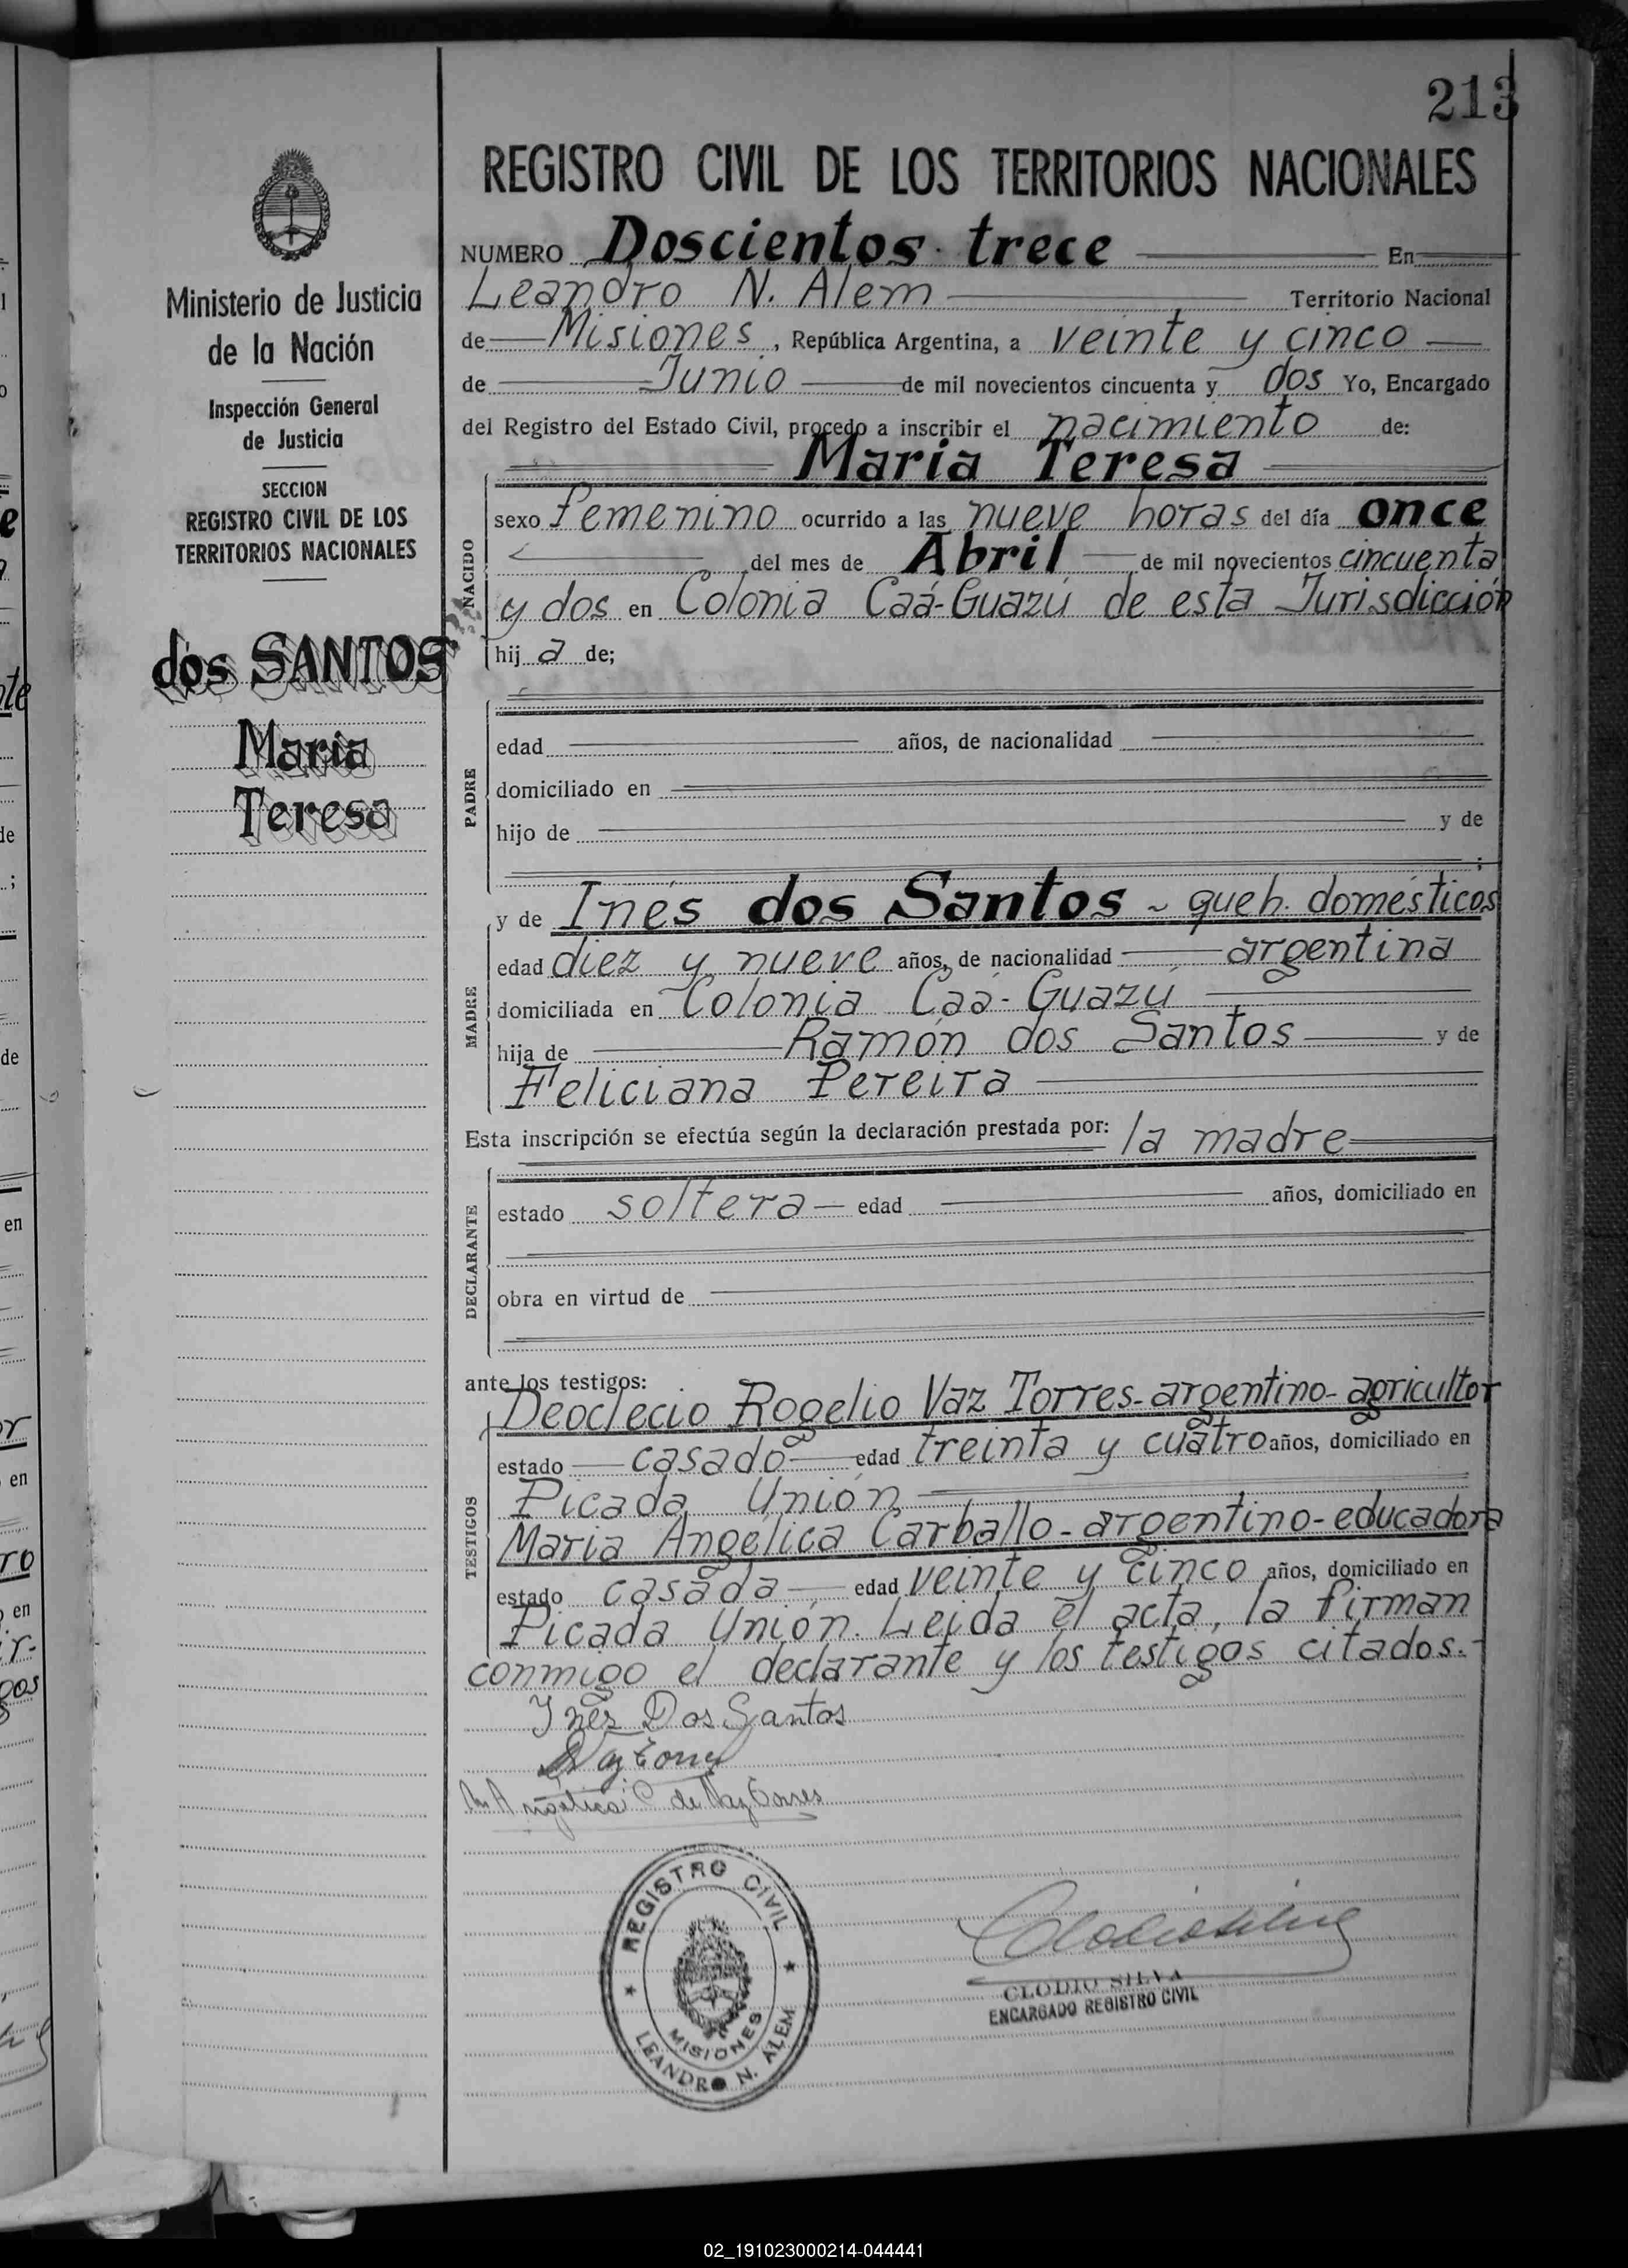 213
REGISTRO CIVIL DE LOS TERRITORIOS NACIONALES
NUMERO Doscientos trece En
Leandro N. Alem Territorio Nacional
de Misiones, República Argentina, a veinte y cinco
de Junio de mil novecientos cincuenta y dos Yo, Encargado
del Registro del Estado Civil, procedo a inscribir el nacimiento de:
Maria Teresa
sexo femenino ocurrido a las nueve horas del día once
del mes de Abril de mil novecientos cincuenta
y dos en Colonia Caá-Guazú de esta Jurisdicción
hij a de;
NACIDO
Ministerio de Justicia
de la Nación
Inspección General
de Justicia
SECCION
REGISTRO CIVIL DE LOS
TERRITORIOS NACIONALES
dos SANTOS
Maria
Teresa
PADRE
edad años, de nacionalidad
domiciliado en
hijo de y de
;
MADRE
y de Inés dos Santos - queh. domésticos
edad diez y nueve años, de nacionalidad argentina
domiciliada en Colonia Caa-Guazú
hija de Ramón dos Santos y de
Feliciana Pereira
Esta inscripción se efectúa según la declaración prestada por: la madre
DECLARANTE
estado soltera edad años, domiciliado en
obra en virtud de
ante los testigos:
TESTIGOS
Deoclecio Rogelio Vaz Torres-argentino-agricultor
estado casado edad treinta y cuatro años, domiciliado en
Picada Unión
Maria Angélica Carballo-argentino-educadora
estado casada edad veinte y cinco años, domiciliado en
Picada Unión. Leida el acta, la firman
conmigo el declarante y los testigos citados.-
Inés Dos Santos
Vaz Torres
M. Angélica C de Vaz Torres
REGISTRO CIVIL
MISIONES
LEANDRO N. ALEM
CLODIO SILVA
ENCARGADO REGISTRO CIVIL
02_191023000214-044441